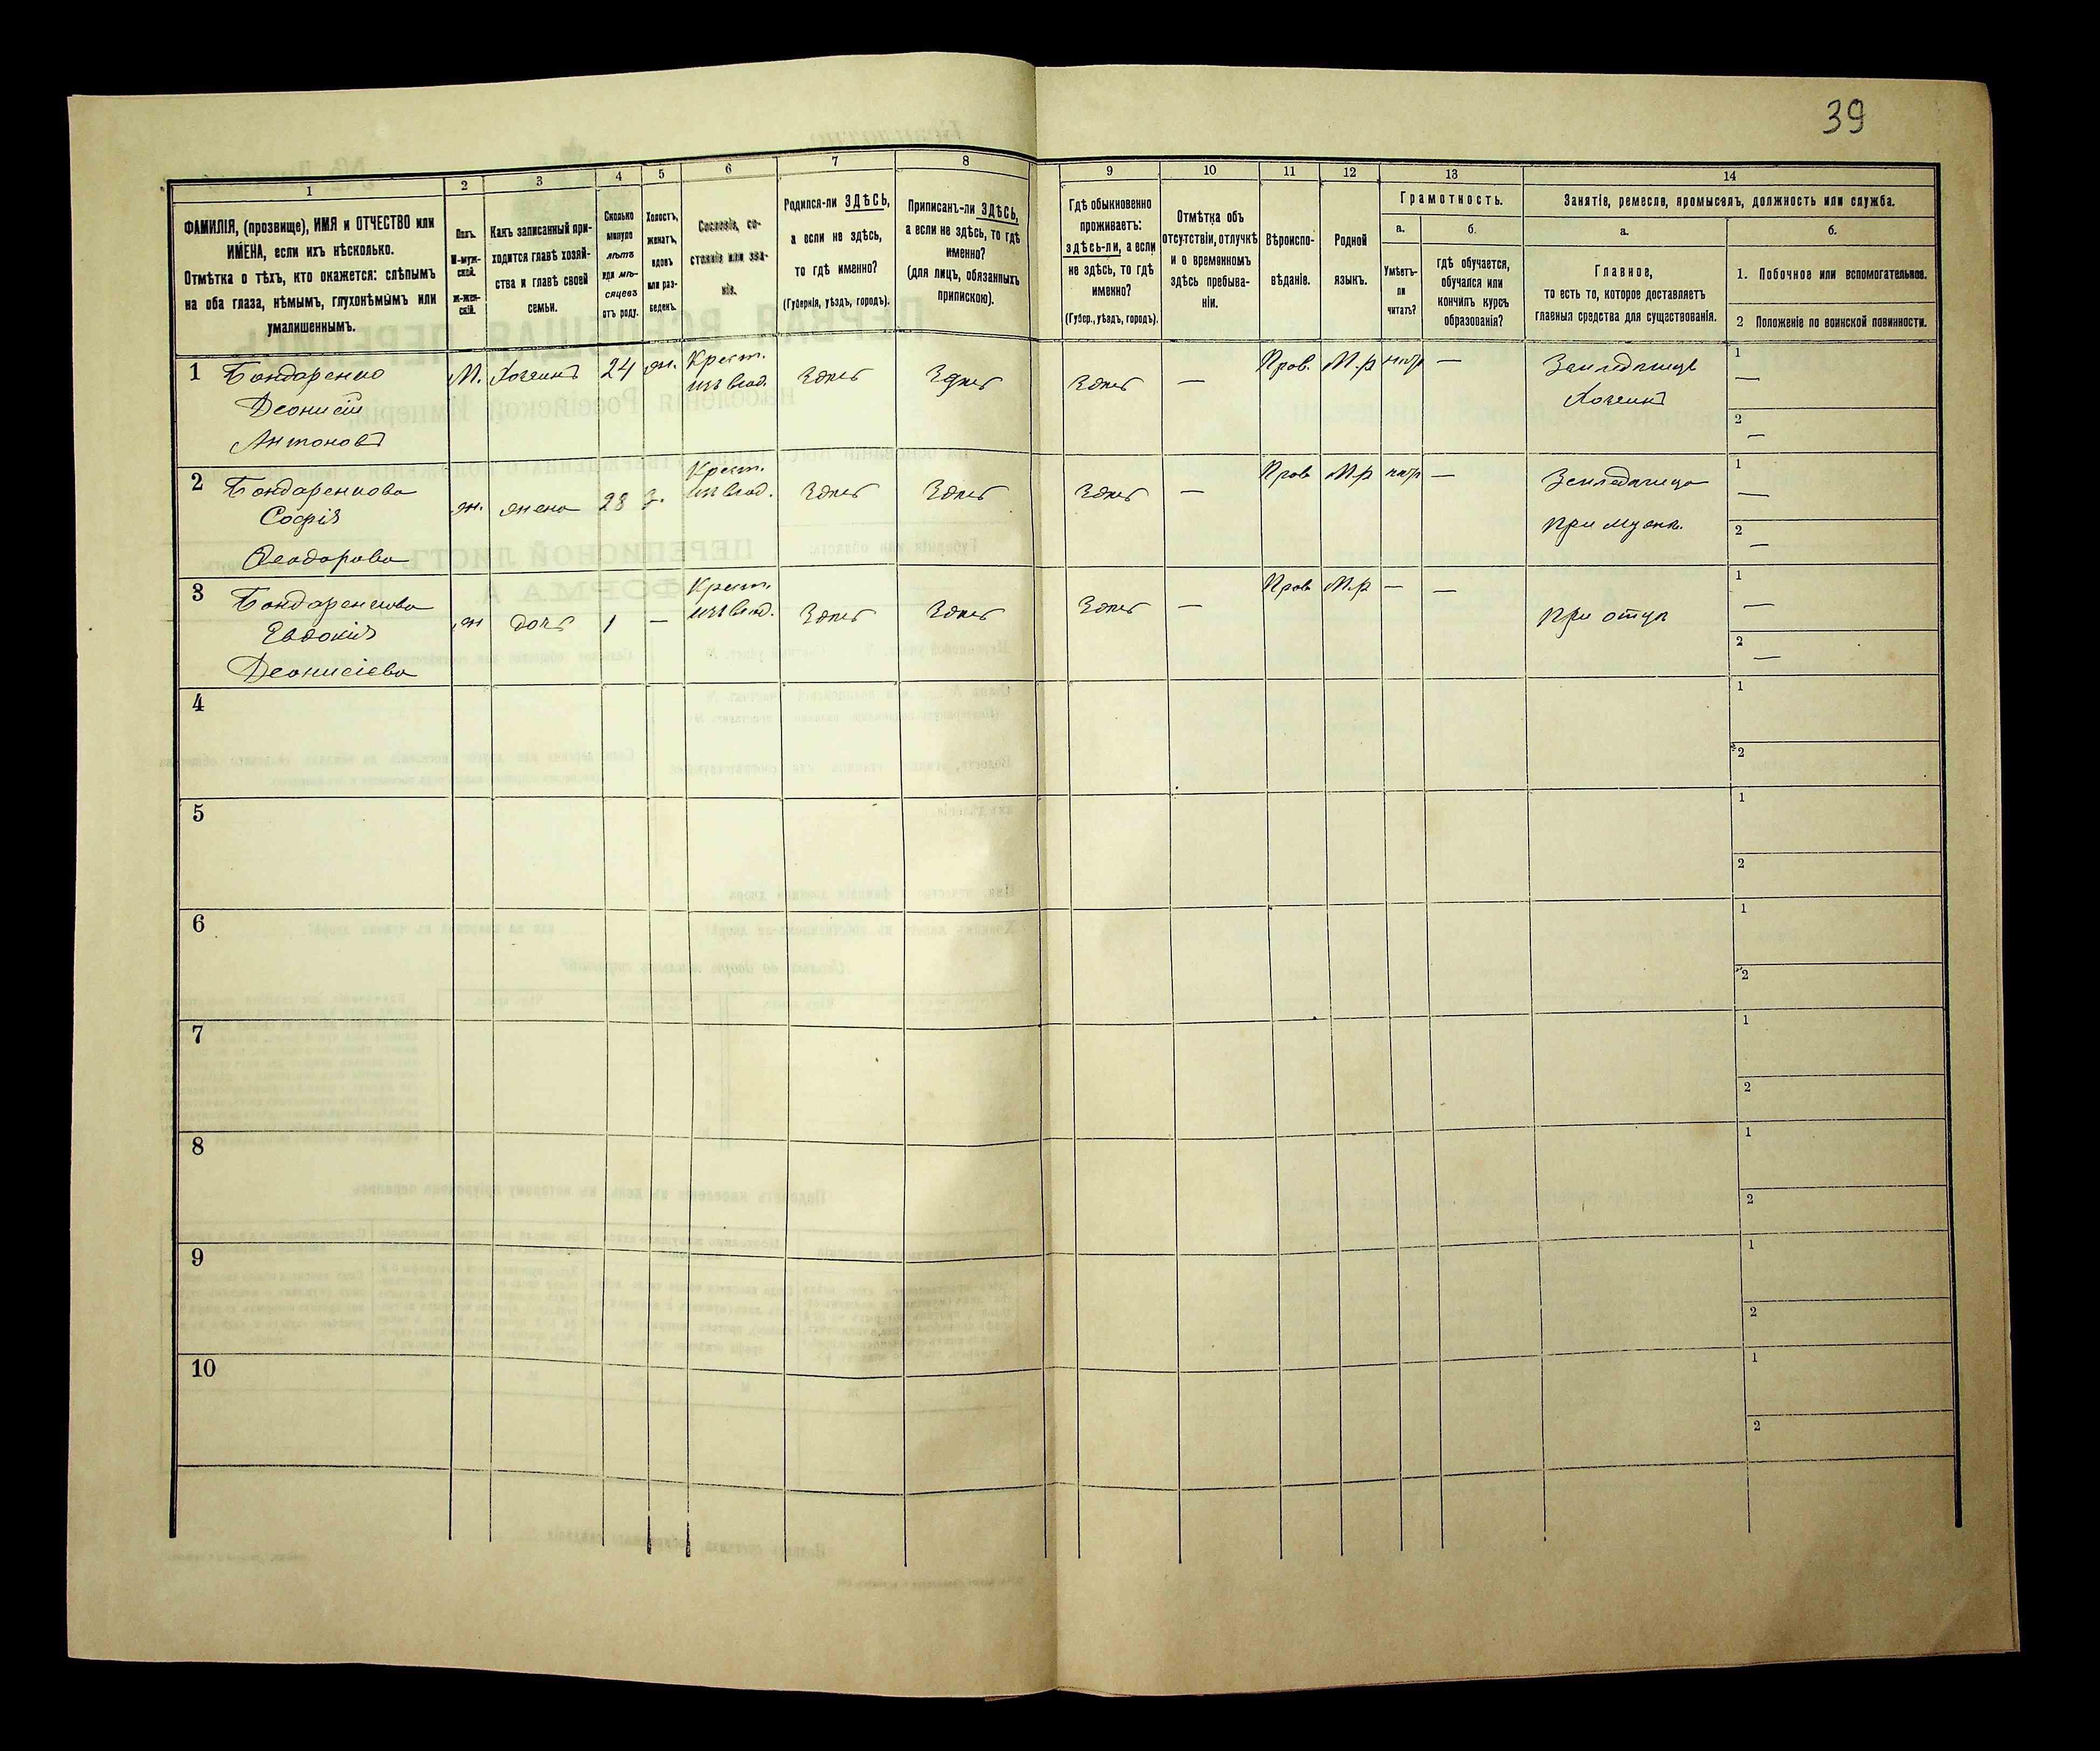 39
1 2 3 4 5 6 7 8 9 10 11 12 13 14
ФАМИЛІЯ, (прозвище), ИМЯ и ОТЧЕСТВО или
ИМЕНА, если ихъ нѣсколько.
Отмѣтка о тѣхъ, кто окажется: слѣпымъ
на оба глаза, нѣмымъ, глухонѣмымъ или
умалишеннымъ.
Полъ.
М-муж-
ской.
Ж-жен-
скій.
Какъ записанный при-
ходится главѣ хозяй-
ства и главѣ своей
семьи.
Сколько
минуло
лѣтъ
или мѣ-
сяцевъ
отъ роду.
Холостъ,
женатъ,
вдовъ
или раз-
веденъ.
Сословіе, со-
стояніе или зва-
ніе.
Родился-ли ЗДѢСЬ,
а если не здѣсь,
то гдѣ именно?
(Губернія, уѣздъ, городъ).
Приписанъ-ли ЗДѢСЬ,
а если не здѣсь, то гдѣ
именно?
(для лицъ, обязанныхъ
припискою).
Гдѣ обыкновенно
проживаетъ:
здѣсь-ли, а если
не здѣсь, то гдѣ
именно?
(Губер., уѣздъ, городъ).
Отмѣтка объ
отсутствіи, отлучкѣ
и о временномъ
здѣсь пребыва-
ніи.
Вѣроиспо-
вѣданіе.
Родной
языкъ.
Грамотность.
а.
Умѣетъ-
ли
читать?
б.
гдѣ обучается,
обучался или
кончилъ курсъ
образованія?
Занятіе, ремесло, промыселъ, должность или служба.
а.
Главное,
то есть то, которое доставляетъ
главныя средства для существованія.
б.
1. Побочное или вспомогательное.
2 Положеніе по воинской повинности.
1 Бондаренко М. Хозяинъ 24 ж. Крест. Здѣсь Здѣсь Здѣсь — Пров. М.р нѣтъ — Земледѣлецъ 1 —
Деонисій изъ влад. Хозяинъ
Антоновъ 2 —
2 Бондаренкова ж. жена 28 з. Крест. Здѣсь Здѣсь Здѣсь — Пров М.р нѣтъ — Земледѣлица 1 —
Софія изъ влад. при мужѣ.
Ѳеодорова 2 —
3 Бондаренкова ж дочь 1 — Крест. Здѣсь Здѣсь Здѣсь — Пров М.р — — при отцѣ 1 —
Евдокія изъ влад.
Деонисіева 2 —
4 1
2
5 1
2
6 1
2
7 1
2
8 1
2
9 1
2
10 1
2